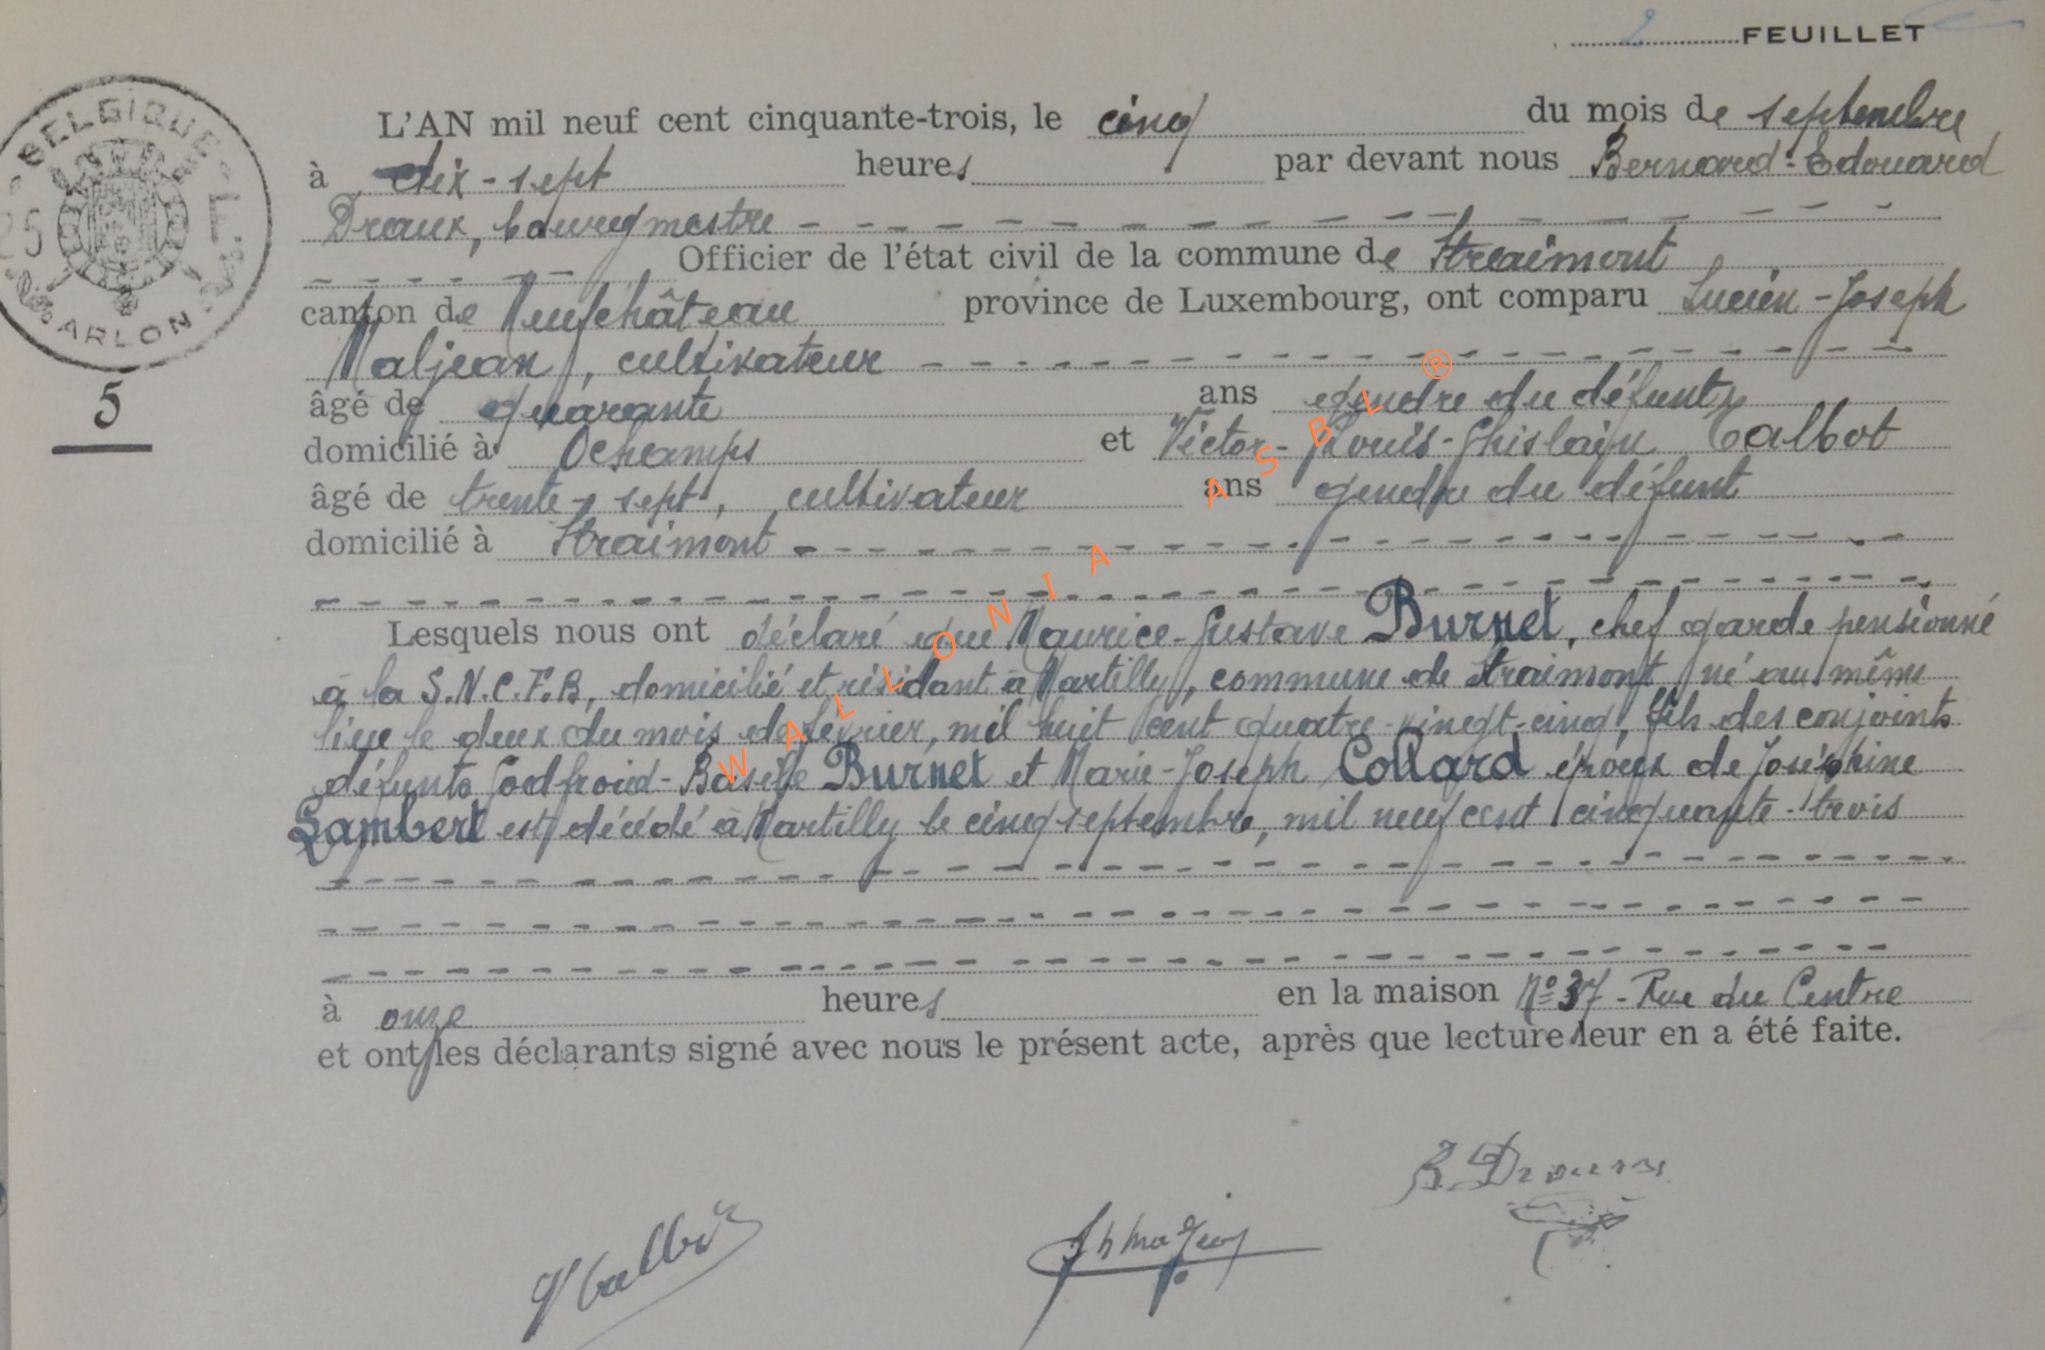 2 FEUILLET
BELGIQUE
ARLON
5
L'AN mil neuf cent cinquante-trois, le cinq du mois de septembre
à dix-sept heures par devant nous Bernard-Edouard
Dreaux, bourgmestre
Officier de l'état civil de la commune de Straimont
canton de Neufchâteau province de Luxembourg, ont comparu Lucien-Joseph
Maljean, cultivateur
âgé de quarante ans gendre du défunt
domicilié à Ochamps et Victor-Louis-Ghislain Talbot
âgé de trente-sept, cultivateur ans gendre du défunt
domicilié à Straimont
Lesquels nous ont déclaré que Maurice-Gustave Burnet, chef garde pensionné
à la S.N.C.F.B, domicilié et résidant à Martilly, commune de Straimont, né au même
lieu le deux du mois de février, mil huit cent quatre-vingt-cinq, fils des conjoints
défunts Godfroid-Basile Burnet et Marie-Joseph Collard époux de Joséphine
Lambert est décédé à Martilly le cinq septembre, mil neuf cent cinquante-trois
à onze heures en la maison N° 37 - Rue du Centre
et ont les déclarants signé avec nous le présent acte, après que lecture leur en a été faite.
WALLONIA ASBL ®